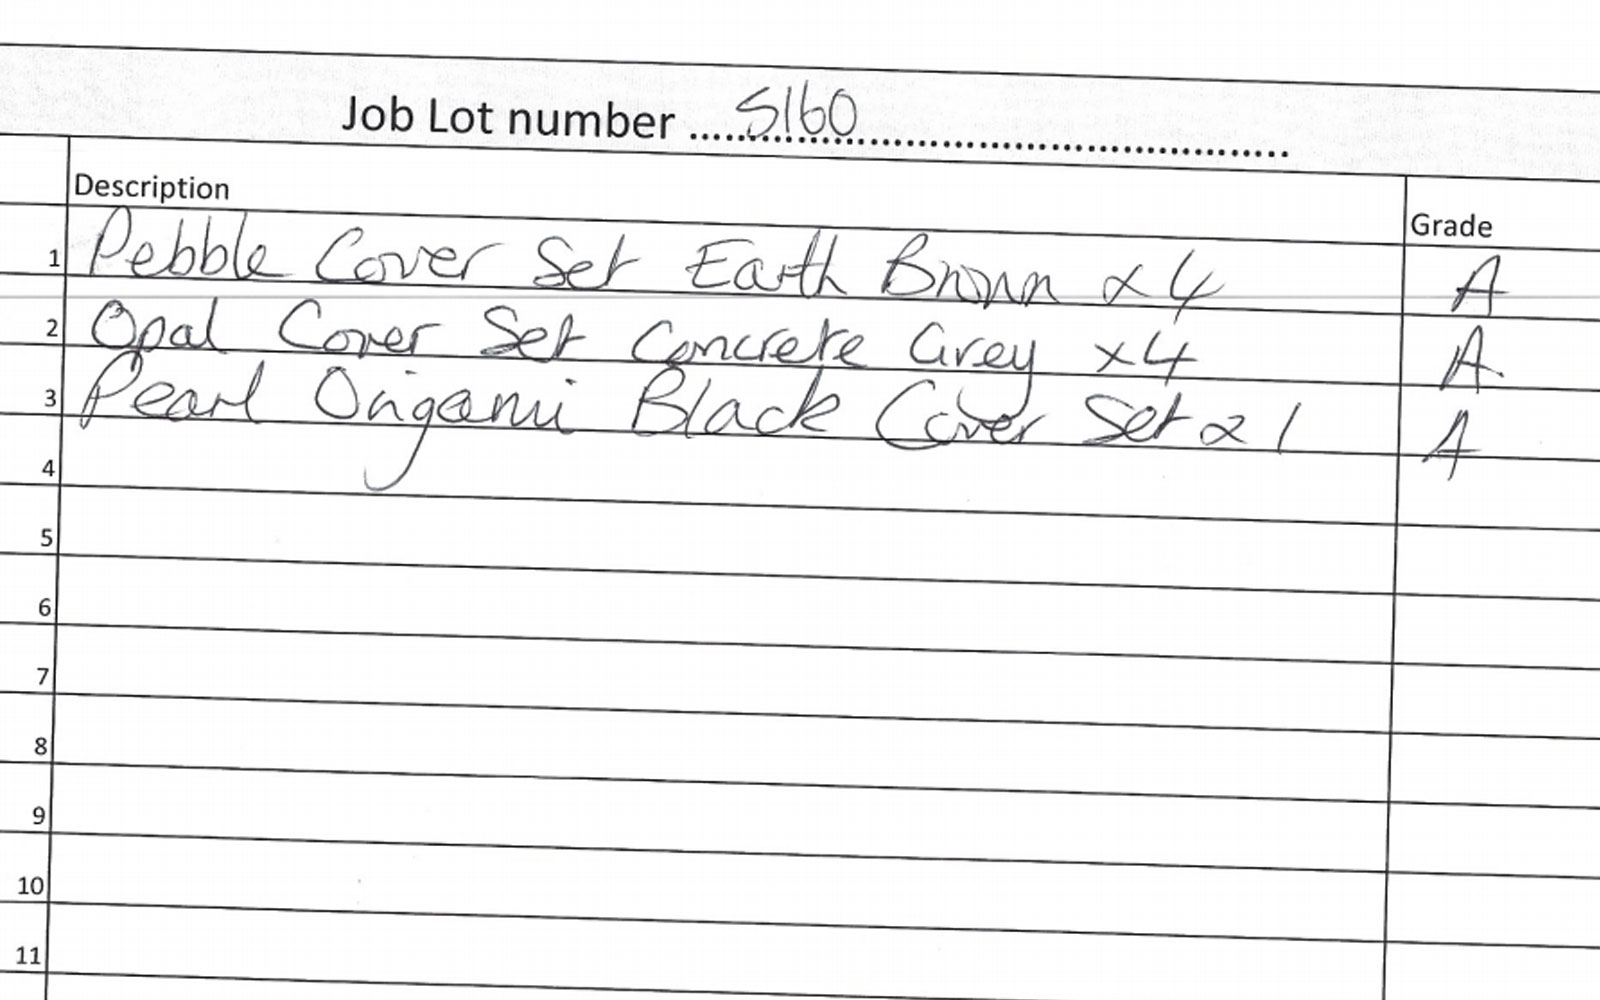 Job Lot number ..... 5160 .....
Description
Grade
1 Pebble Cover Set Earth Brown x 4 A
2 Opal Cover Set Concrete Grey x4 A
3 Pearl Origami Black Cover Set x 1 A
4
5
6
7
8
9
10
11